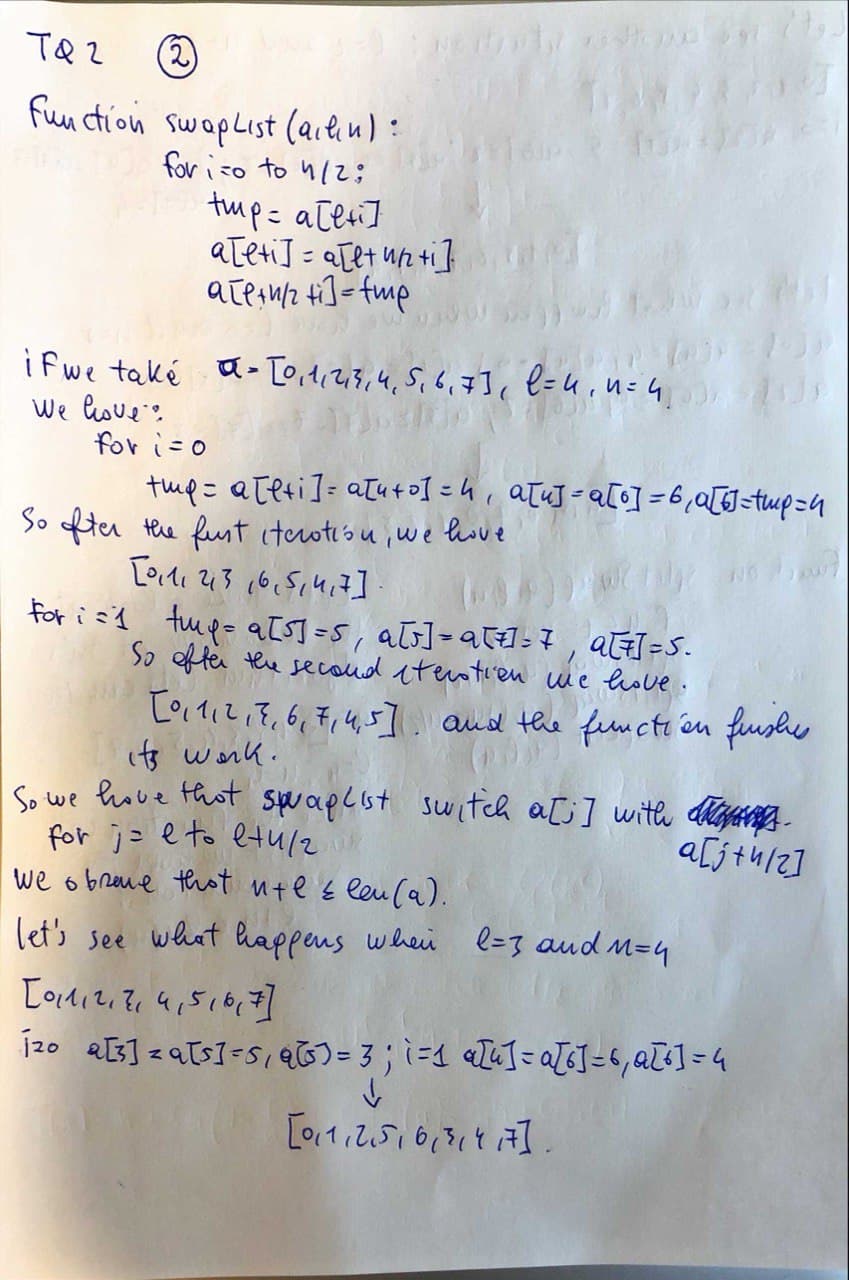 TQ2 ②
Function swapList (a,l,n):
for i=0 to n/2:
tmp = a[l+i]
a[l+i] = a[l+n/2+i]
a[l+n/2+i]=tmp
if we take a = [0,1,2,3,4,5,6,7], l=4, n=4.
We have:
for i=0
tmp = a[l+i] = a[4+0] = 4, a[4] = a[6] = 6, a[6]=tmp=4
So after the first iteration, we have
[0,1,2,3,6,5,4,7].
for i=1 tmp = a[5]=5, a[5]=a[7]=7, a[7]=5.
So after the second iteration we have.
[0,1,2,3,6,7,4,5]. and the function finishes
its work.
So we have that swapList switch a[j] with
for j = l to l+n/2 a[j+n/2]
We observe that n+l ≤ len(a).
let's see what happens when l=3 and n=4
[0,1,2,3,4,5,6,7]
i=0 a[3] = a[5]=5, a(5) = 3; i=1 a[4]=a[6]=6, a[6]=4
↓
[0,1,2,5,6,3,4,7].